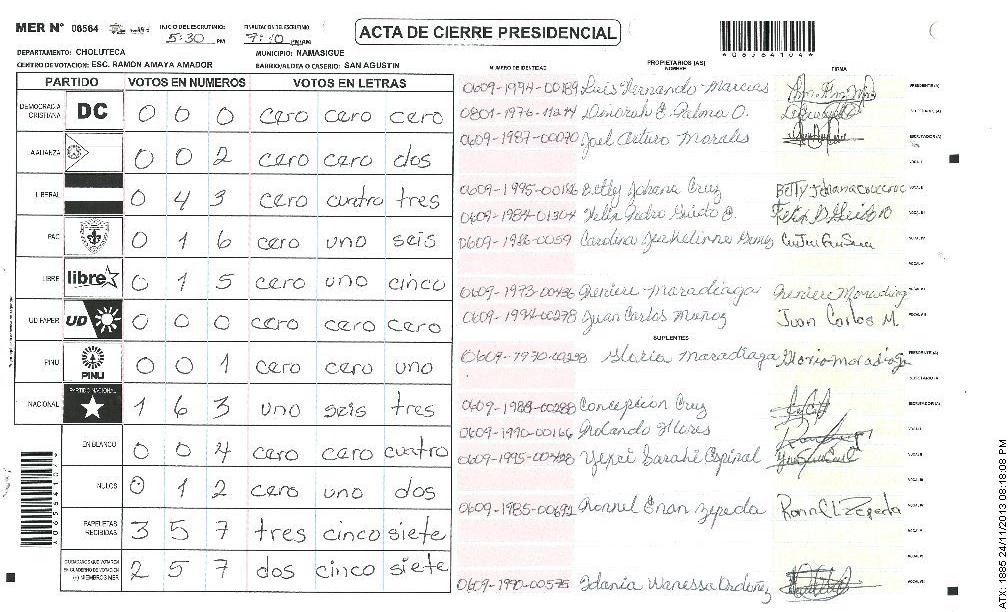 MER Nº 06564
INICIO DEL ESCRUTINIO: 5:30 PM
FINALIZACION DEL ESCRUTINIO:
ACTA DE CIERRE PRESIDENCIAL
DEPARTAMENTO: CHOLUTECA
MUNICIPIO: NAMASIGUE
CENTRO DE VOTACION: ESC. RAMON AMAYA AMADOR
BARRIO/ALDEA O CASERIO: SAN AGUSTIN
PARTIDO VOTOS EN NUMEROS VOTOS EN LETRAS
DEMOCRACIA CRISTIANA DC 0 0 0 cero cero cero
ALIANZA 0 0 2 cero cero dos
LIBERAL 0 4 3 cero cuatro tres
PAC 0 1 6 cero uno seis
LIBRE libre 0 1 5 cero uno cinco
UD FAPER UD 0 0 0 cero cero cero
PINU PINU 0 0 1 cero cero uno
NACIONAL PARTIDO NACIONAL 1 6 3 uno seis tres
EN BLANCO 0 0 4 cero cero cuatro
NULOS 0 1 2 cero uno dos
PAPELETAS RECIBIDAS 3 5 7 tres cinco siete
CIUDADANOS QUE VOTARON EN CUADERNO DE VOTACION (+) MIEMBROS MER 2 5 7 dos cinco siete
NUMERO DE IDENTIDAD PROPIETARIOS (AS) NOMBRE FIRMA
0609-1994-00189 Luis Hernando Marcias PRESIDENTE (A)
0801-1976-11244 Dinorah E. Palma O. SECRETARIO (A)
0609-1987-00070 Joel Arturo Morales ESCRUTADOR (A)
VOCAL I
Betty Johana Cruz Betty Johana Cruz VOCAL II
0609-1984-01304 VOCAL III
0609-1986-0059 Carolina VOCAL IV
VOCAL V
0609-1973-00436 Reniere Moradiaga Reniere Moradiaga
0609-1994-00278 Juan Carlos Muñoz Juan Carlos M.
SUPLENTES
0609-1970-00298 Gloria Maradiaga Gloria Moradiaga PRESIDENTE (A)
SECRETARIO (A)
0609-1988-00288 Concepcion Cruz ESCRUTADOR (A)
0609-1990-00166 Rolando Flores VOCAL I
Sarahi Espinal VOCAL II
VOCAL III
Ronnel Enan Zepeda
0609-1990-00575 Idania Wanessa Ordoñez
*06564104*
ATX: 1885 24/11/2013 08:18:08 PM